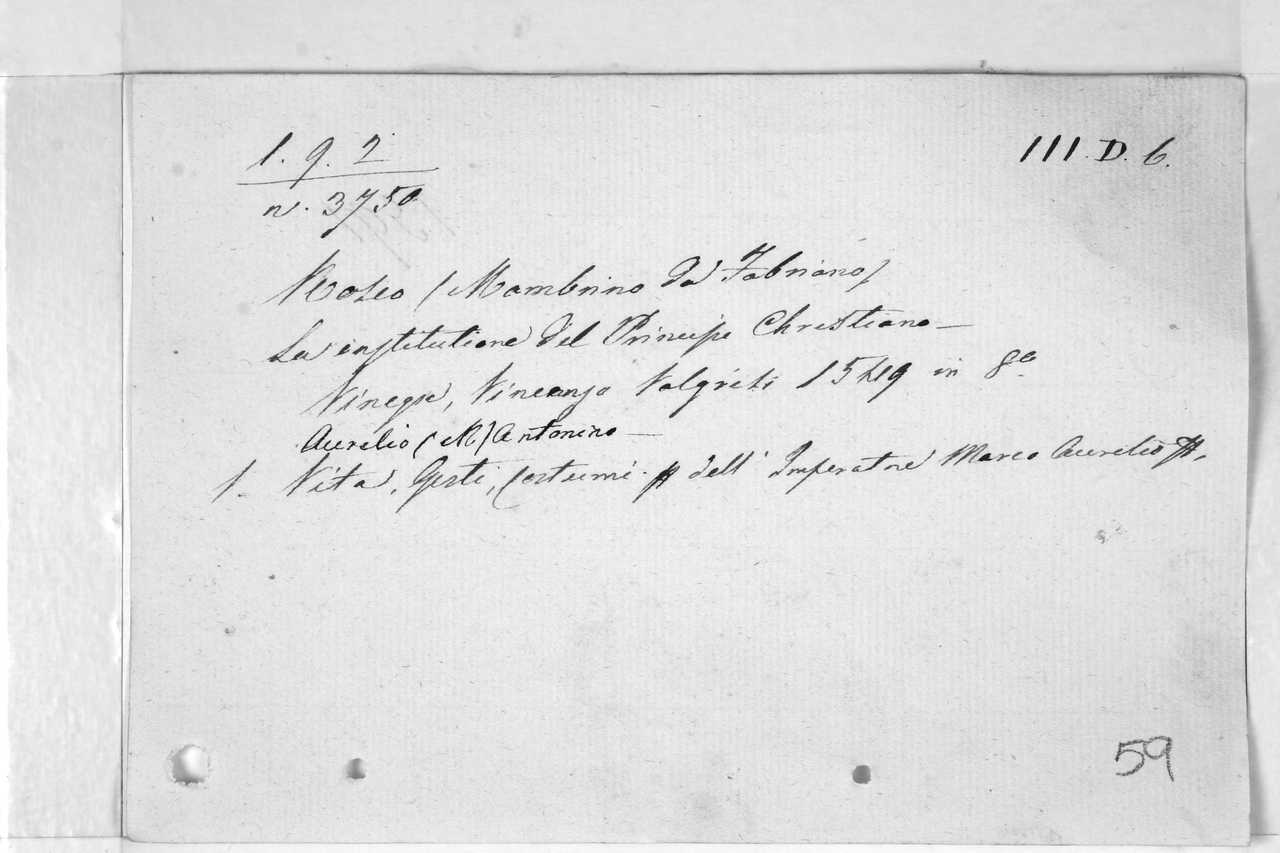 1. 9. 2
III. D. 6.
n. 3750
Roseo (Mambrino da Fabriano)
La institutione del Principe Christiano—
Vinegia, Vincenzo Valgrisi 1549 in 8º
Aurelio (M) Antonino—
1. Vita, Gesti, Costumi dell' Imperatore Marco Aurelio
59